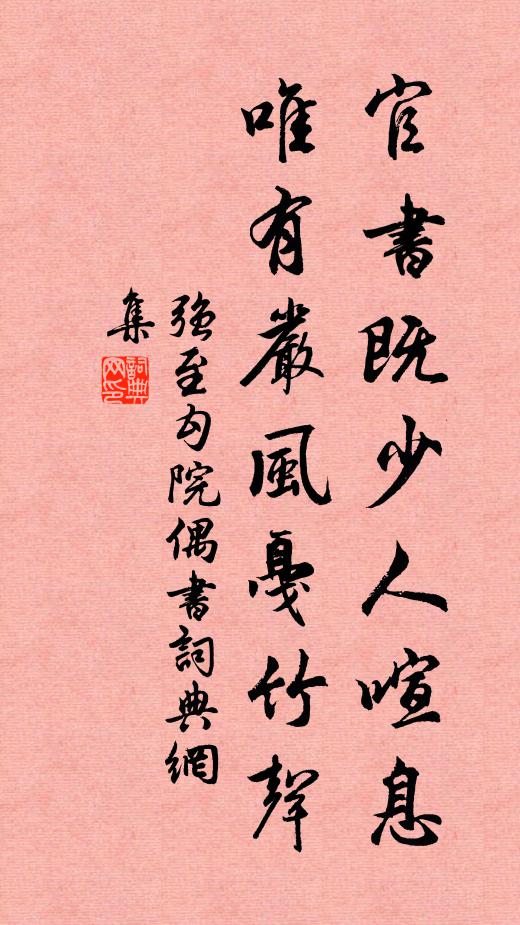 官書既少人喧息
唯有嚴風戛竹聲
強至勾院偶書詞典網
集
詞典
网印